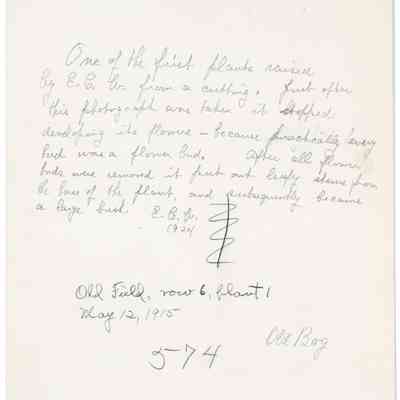 One of the first plants raised
by E. C. W. from a cutting. Just after
this photograph was taken it stopped
developing its flowers – because practically every
bud was a flower bud. After all flower
buds were removed it put out leafy stems from
the base of the plant, and subsequently became
a large bush. E. C. W.
1924
Old Field, row 6, plant 1
May 12, 1915
Old Bog
574